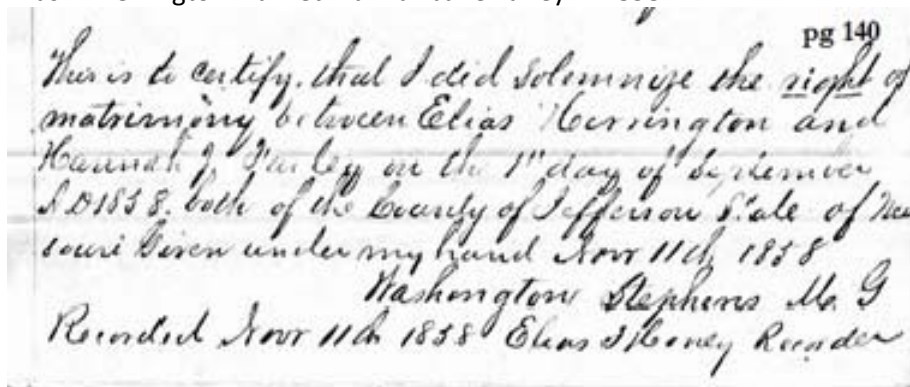 pg 140
This is to certify. that I did Solemnize the right of
matrimony between Elias Herrington and
Hannah J. Farley on the 1st day of September
AD 1858. both of the County of Jefferson State of Mis
souri Given under my hand Novr 11th 1858
Washington Stephens M. G
Recorded Novr 11th 1858 Elias F Honey Recorder